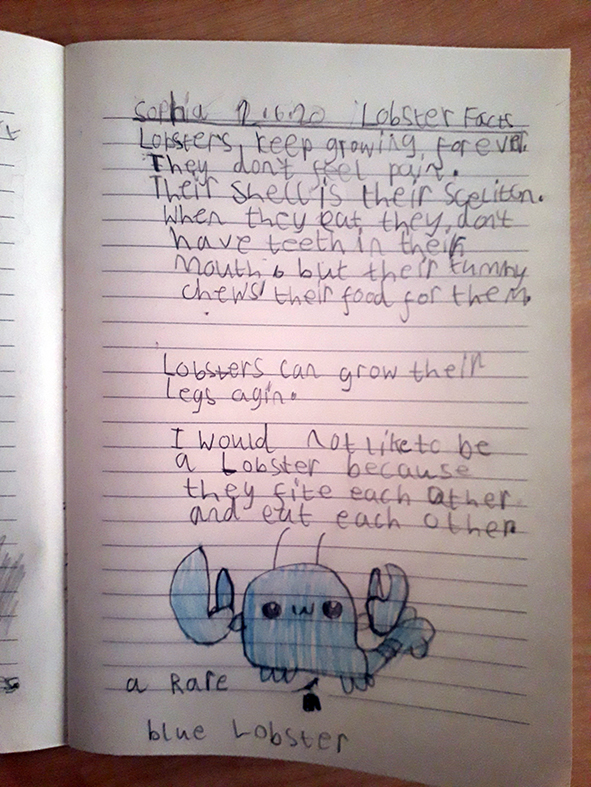 Sophia 12.6.20 Lobster Facts
Lobsters keep growing forever.
They don't feel pain.
Their Shell is their Sceliton.
When they eat they don't
have teeth in their
mouth, but their tummy
chews their food for them.
Lobsters can grow their
legs agin.
I would not like to be
a Lobster because
they fite each other
and eat each other
a Rare
blue Lobster